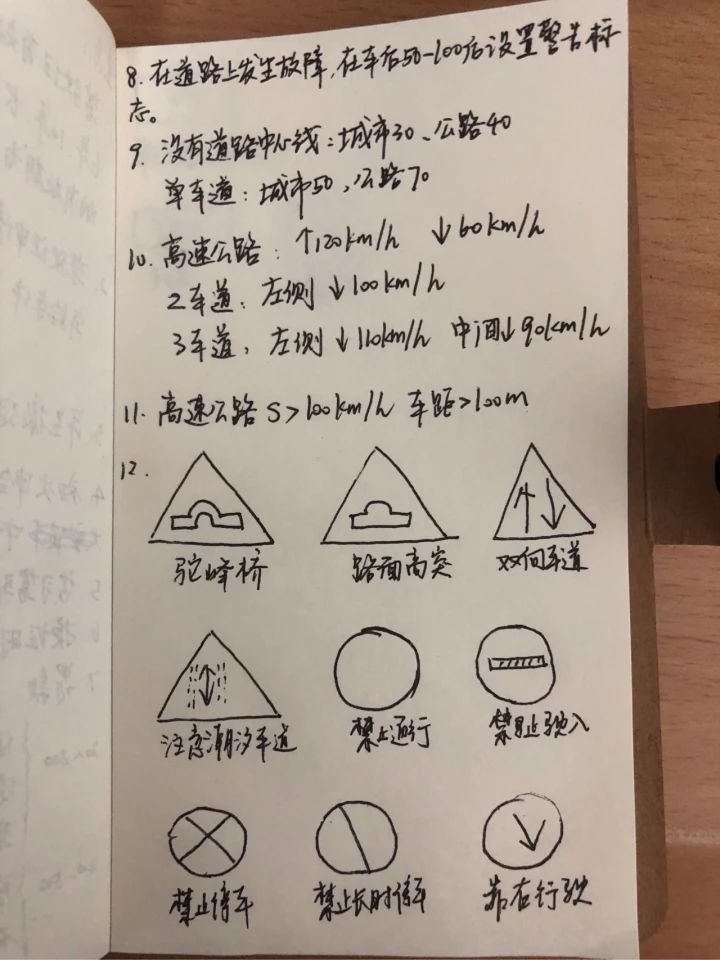 8. 在道路上发生故障,在车后50-100后设置警告标
志。
9. 没有道路中心线:城市30、公路40
单车道:城市50、公路70
10. 高速公路:↑120km/h ↓60km/h
2车道:左侧↓100km/h
3车道,左侧↓110km/h 中间↓90km/h
11. 高速公路 S>100km/h 车距>100m
12.
驼峰桥 路面高突 双向车道
注意潮汐车道 禁止通行 禁止驶入
禁止停车 禁止长时停车 靠右行驶